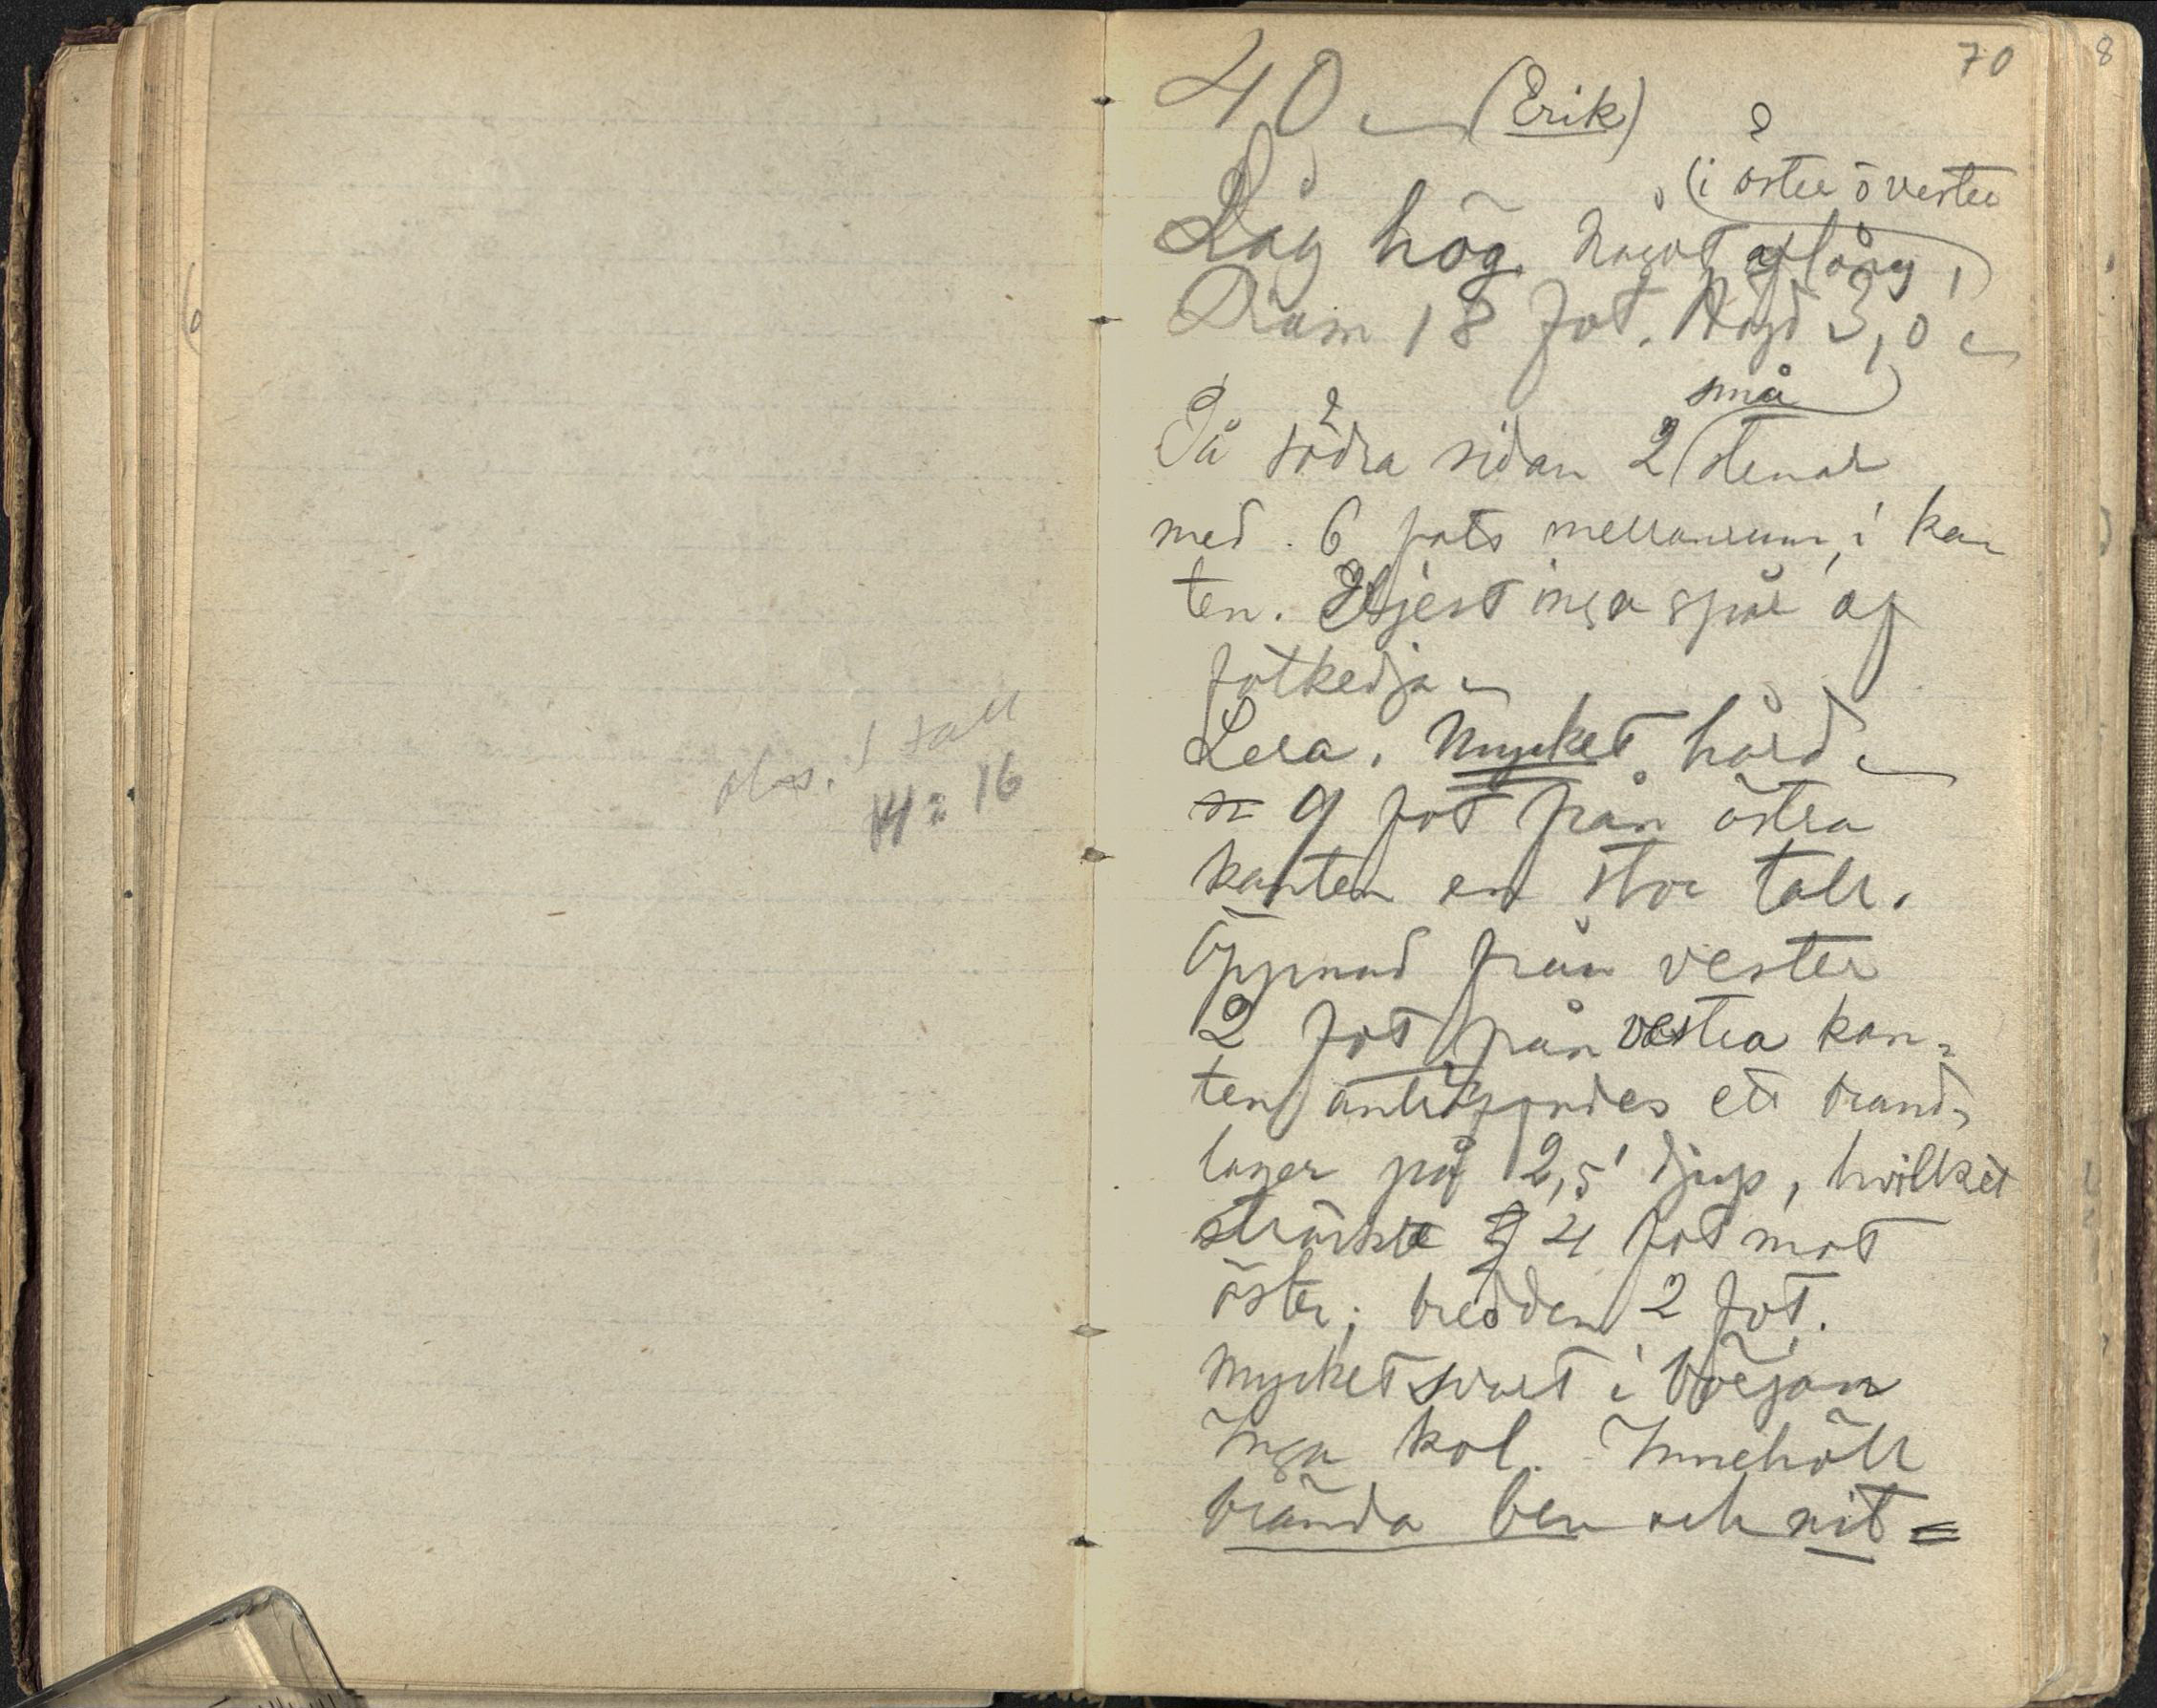 obs. 1 tall
14 : 16
70
40 (Erik)
(i öster o vester
Låg hög. Något aflång,
Diam 18 fot. Höjd 3,0
små
På södra sidan 2 stenar
med 6 fots mellanrum, i kan
ten. Eljest inga spår af
fotkedja
Lera. Mycket hård
9 fot från östra
kanten en stor tall.
Öppnad från vester
2 fot från vestra kan-
ten anträffades ett brand-
lager på 2,5' djup, hvilket
sträckte 4 fot mot
öster; bredden 2 fot.
Mycket svart i början
Inga kol. Innehöll
brända ben och nit=
8